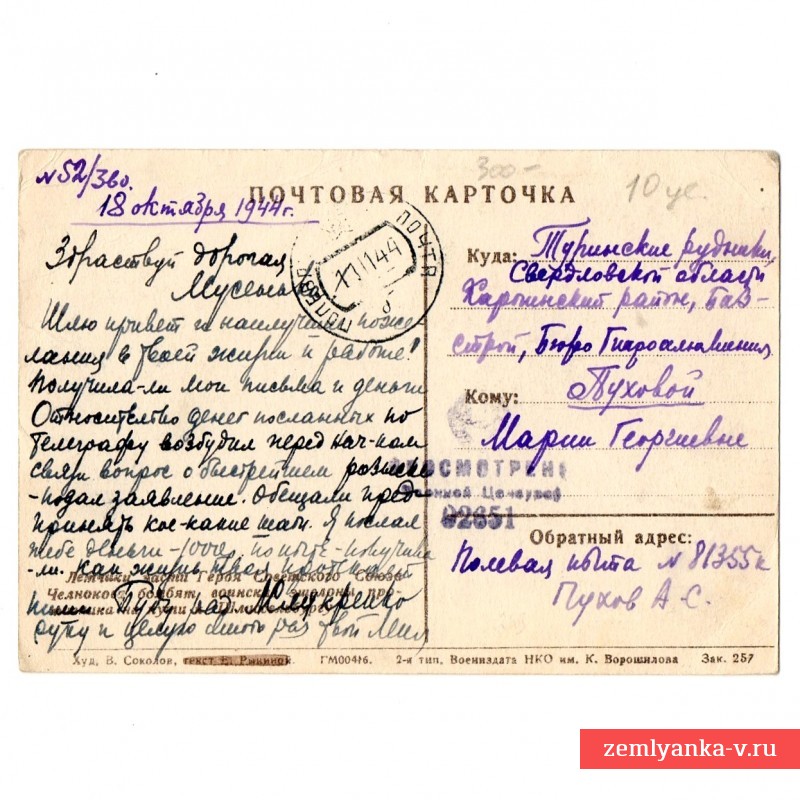 N 52/зво.
18 октября 1944 г.
300-
10 уе.
ПОЧТОВАЯ КАРТОЧКА
ПОЛЕВАЯ ПОЧТА
11 11 44
Здраствуй дорогая
Мусенька
Шлю привет и наилучшие поже-
лания в твоей жизни и работе!
Получила-ли мои письма и деньги
Относительно денег посланных по
телеграфу возбудил перед нач-ком
связи вопрос о быстрейшем розыске
-подал заявление. Обещали пред-
принять кое-какие шаги. Я послал
тебе деньги -1000р. по почте- получила
-ли. Как жизнь твоя протекает
пиши
Жму крепко
руку и целую много раз твой
Летчики части Героя Советского Союза
Челнокова бомбят воинские эшелоны про-
Худ. В. Соколов, текст Н. Рыкиной. ГМ00416. 2-я тип. Воениздата НКО им. К. Ворошилова Зак. 257
Куда: Туринские рудники,
Свердловской области
район, Баз-
строй, Бюро Гидроалюминия
Кому: Пуховой
Марии Георгиевне
ПРОСМОТРЕНО
Военной Цензурой
02651
Обратный адрес:
Полевая почта N 81355к
Пухов А-С.
zemlyanka-v.ru